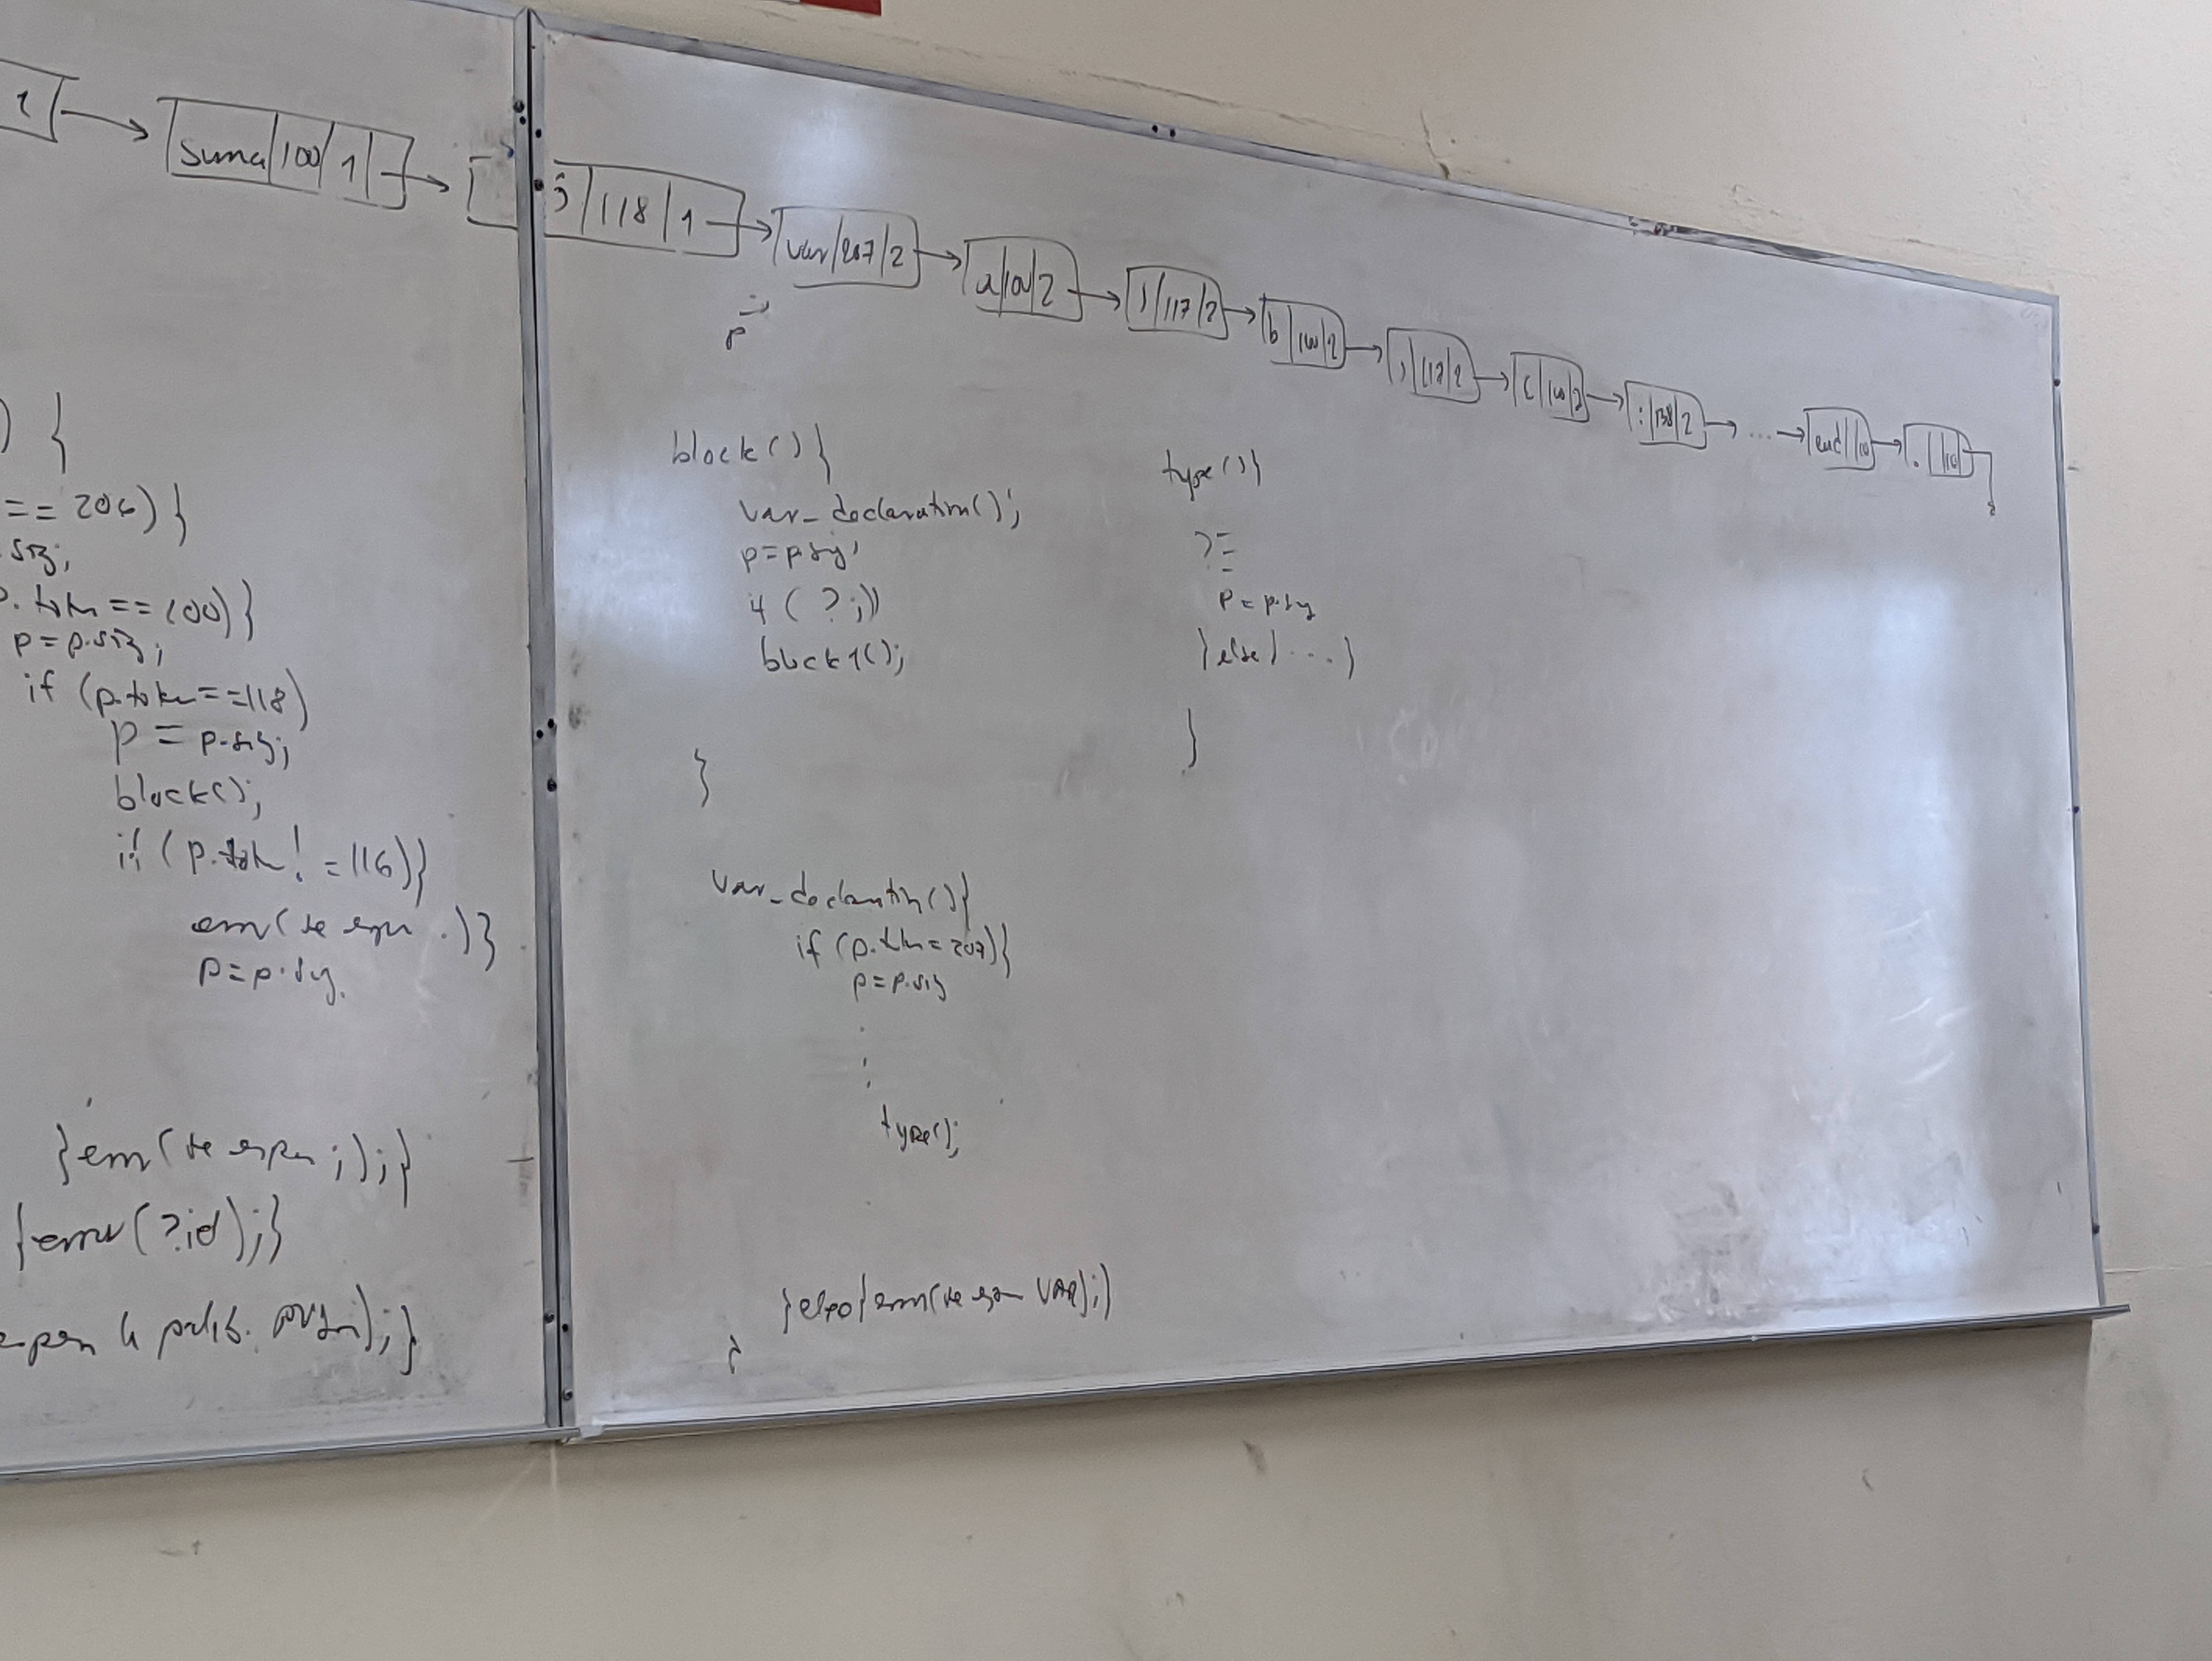 1
suma | 100 | 1
; | 118 | 1
var | 207 | 2
a | 100 | 2
, | 117 | 2
b | 100 | 2
, | 117 | 2
c | 100 | 2
: | 138 | 2
...
end | | 10
. | | 10
p
) {
== 206) {
.sig;
p.token == 100) {
p = p.sig;
if (p.token == 118)
p = p.sig;
block();
if (p.token != 116) {
error(se espera .) }
p = p.sig.
} error(se espera ;); }
{ error(?id); }
espera la palab. program); }
block() {
var_declaration();
p = p.sig;
if (?;))
block1();
}
type() {
p = p.sig
} else } .... }
}
var_declaration() {
if (p.token = 207) {
p = p.sig
.
:
type();
} else { error(se espera VAR); }
}